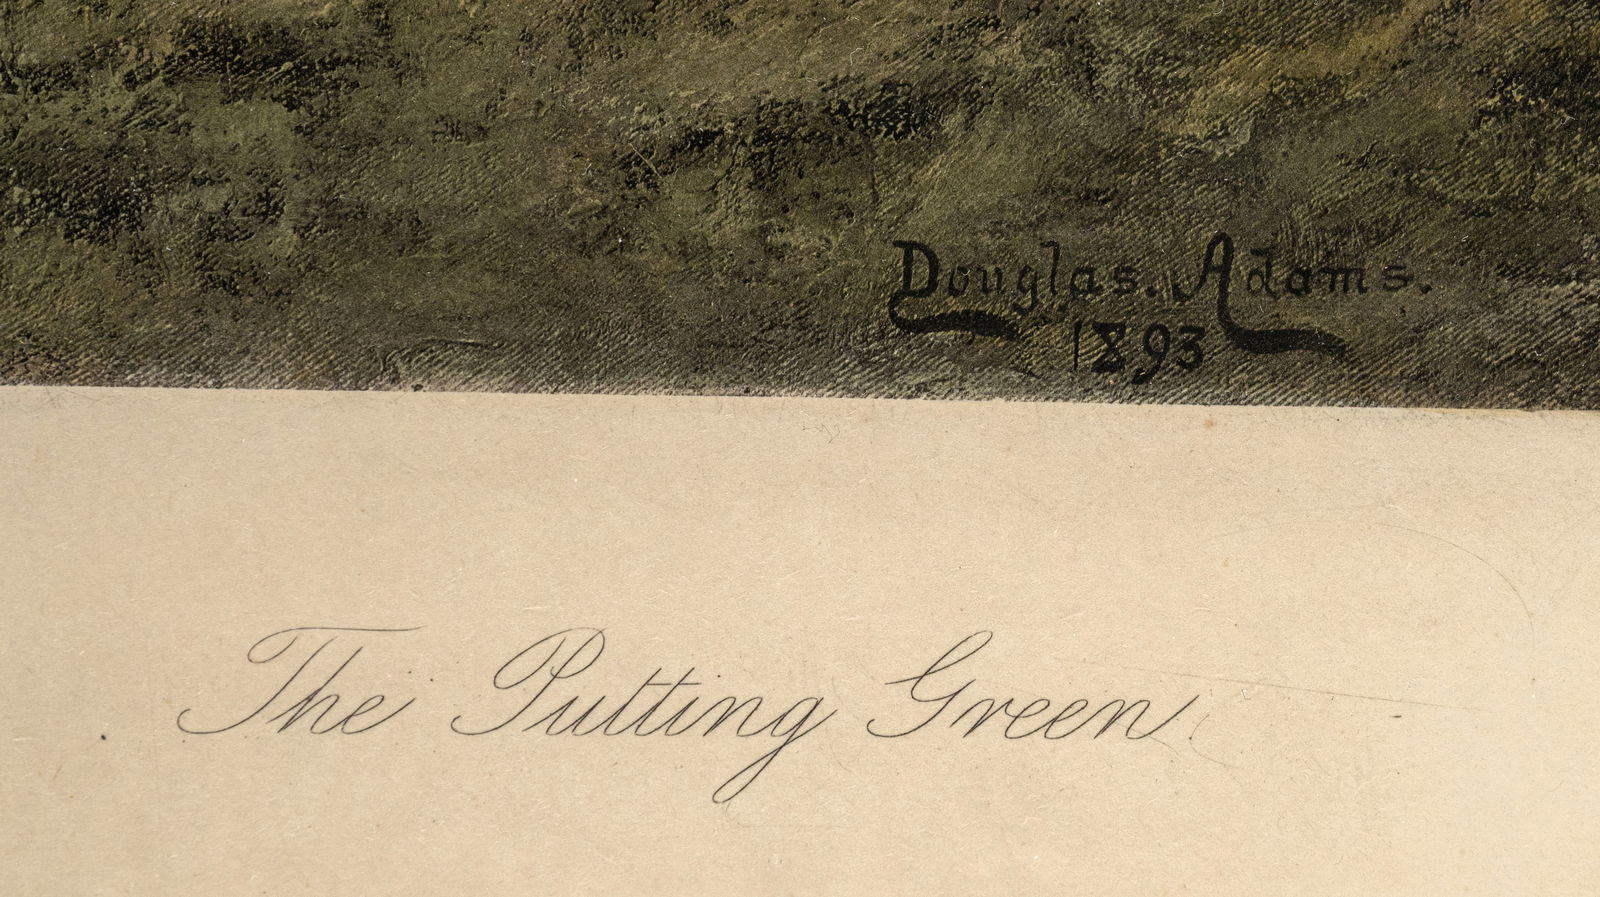 Douglas. Adams.
1893
The Putting Green